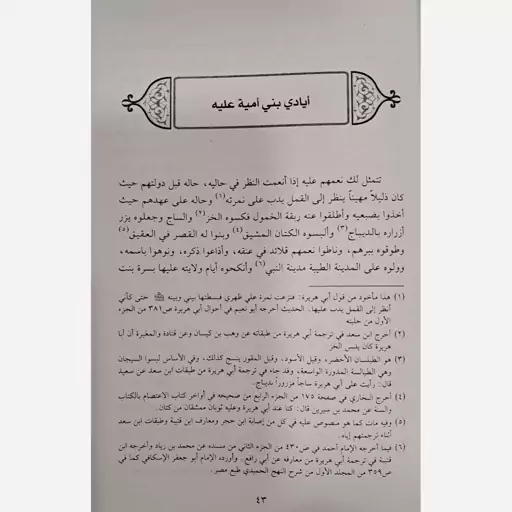 أيادي بني أمية عليه
تتمثل لك نعمهم عليه إذا أنعمت النظر في حاليه، حاله قبل دولتهم حيث
كان ذليلاً مهيناً ينظر إلى القمل يدب على نمرته(١) وحاله على عهدهم حيث
أخذوا بضبعيه وأطلقوا عنه ربقة الخمول فكسوه الخز(٢) والساج وجعلوه يزر
أزراره بالديباج(٣) وألبسوه الكتان المشيق(٤) وبنوا له القصر في العقيق(٥)
وطوقوه ببرهم، وناطوا نعمهم قلائد في عنقه، وأذاعوا ذكره، ونوهوا باسمه،
وولوه على المدينة الطيبة مدينة النبي(٦) وأنكحوه أيام ولايته عليها بسرة بنت
(١) هذا مأخوذ من قول أبي هريرة: فنزعت نمرة على ظهري فبسطتها بيني وبينه ﷺ حتى كأني
أنظر إلى القمل يدب عليها. الحديث أخرجه أبو نعيم في أحوال أبي هريرة ص٣٨١ من الجزء
الأول من حليته
(٢) أخرج ابن سعد في ترجمة أبي هريرة من طبقاته عن وهب بن كيسان وعن قتادة والمغيرة أن أبا
هريرة كان يلبس الخز
(٣) هو الطيلسان الأخضر، وقيل الأسود، وقيل المقور ينسج كذلك، وفي الأساس لبسوا السيجان
وهي الطيالسة المدورة الواسعة، وقد جاء في ترجمة أبي هريرة من طبقات ابن سعد عن سعيد
قال: رأيت على أبي هريرة ساجاً مزروراً بديباج.
(٤) أخرج البخاري في صفحة ١٧٥ من الجزء الرابع من صحيحه في أواخر كتاب الاعتصام بالكتاب
والسنة عن محمد بن سيرين قال: كنا عند أبي هريرة وعليه ثوبان ممشقان من كتان.
(٥) وفيه مات كما هو منصوص عليه في كل من إصابة ابن حجر ومعارف ابن قتيبة وطبقات ابن سعد
أثناء ترجمتهم إياه.
(٦) فيما أخرجه الإمام أحمد في ص٤٣٠ من الجزء الثاني من مسنده عن محمد بن زياد وأخرجه ابن
قتيبة في ترجمة أبي هريرة من معارفه عن أبي رافع.. وأورده الإمام أبو جعفر الإسكافي كما في
ص٣٥٩ من المجلد الأول من شرح النهج الحميدي طبع مصر.
٤٣